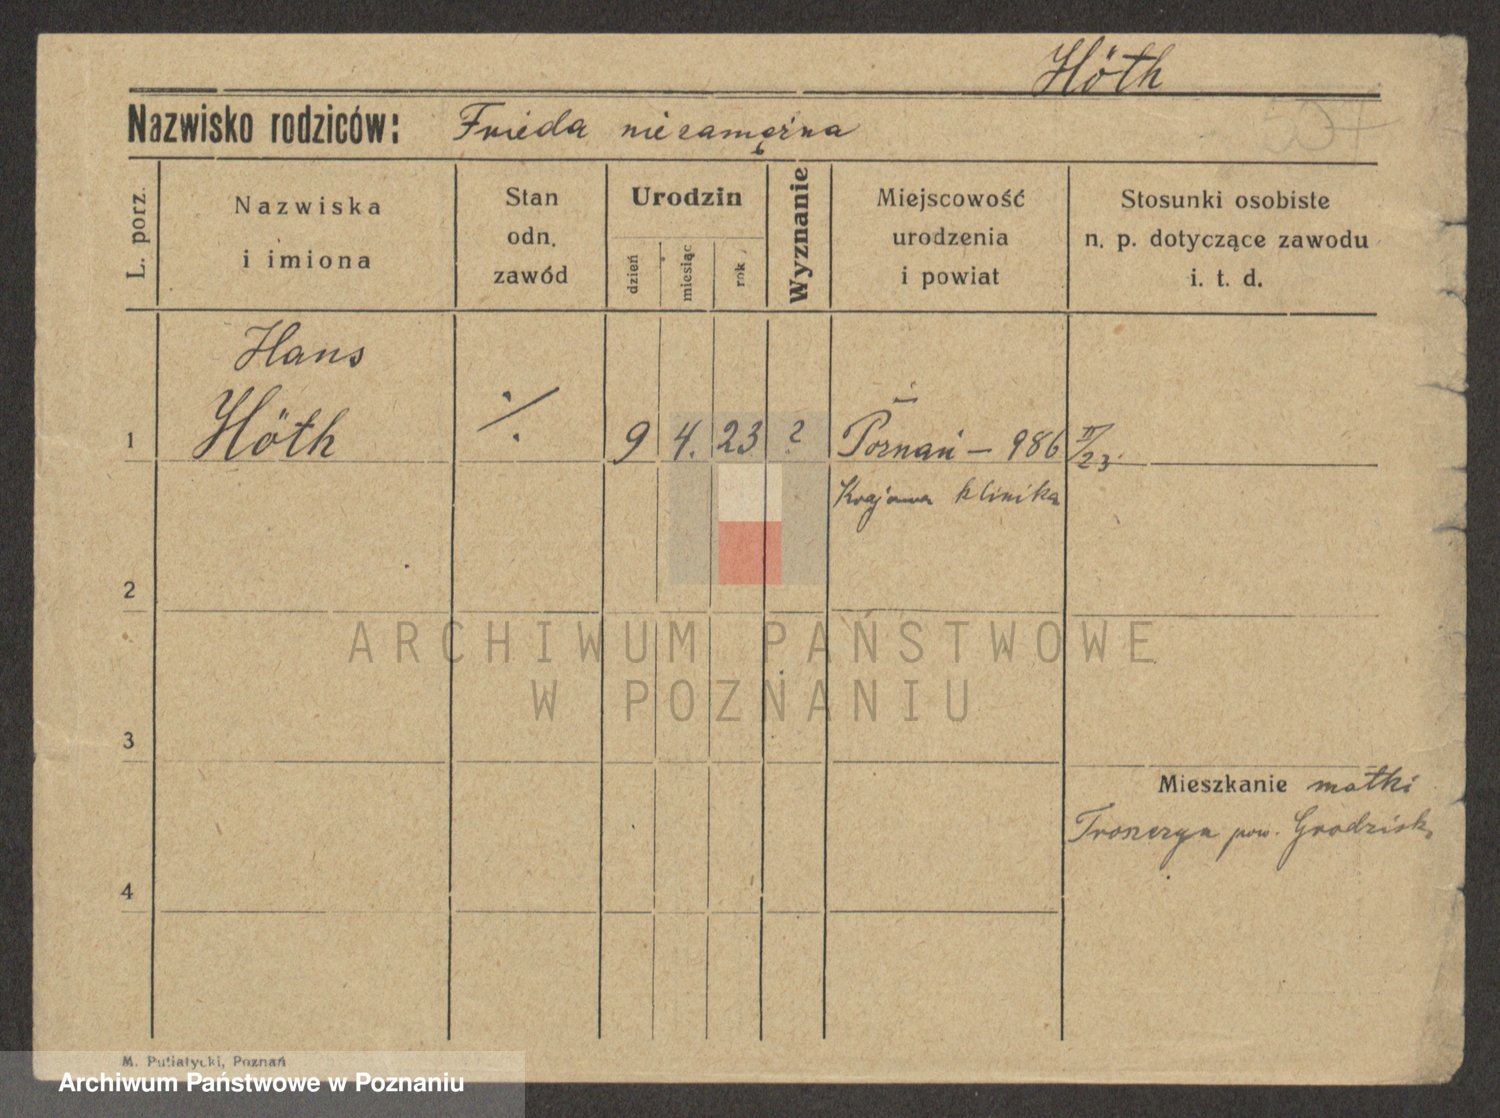 Höth
Nazwisko rodziców: Frieda niezamężna
L. porz.
Nazwiska
i imiona
Stan
odn.
zawód
Urodzin
dzień
miesiąc
rok
Wyznanie
Miejscowość
urodzenia
i powiat
Stosunki osobiste
n. p. dotyczące zawodu
i. t. d.
Hans
1 Höth ·/· 9 4. 23 ? Poznań — 986 II/23.
Krajowa klinika
2
ARCHIWUM PAŃSTWOWE
W POZNANIU
3
Mieszkanie matki
pow. Grodzisk
4
M. Putiatycki, Poznań
Archiwum Państwowe w Poznaniu